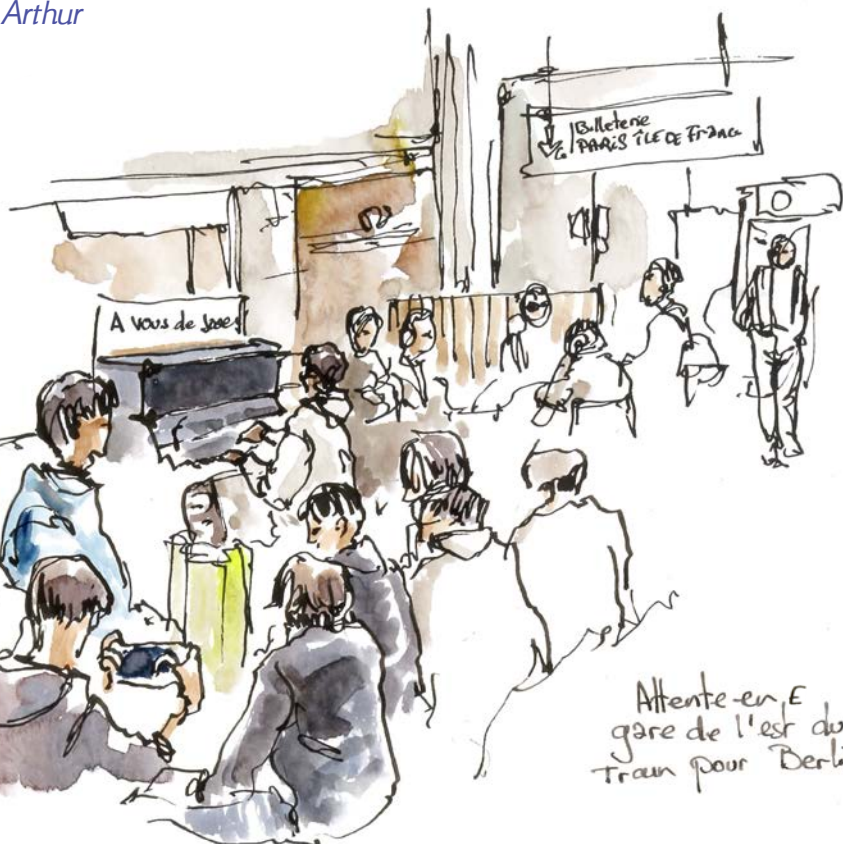 Arthur
Billeterie
PARIS ÎLE DE France
A vous de jouer
Attente en
gare de l'est du
Train pour Berli